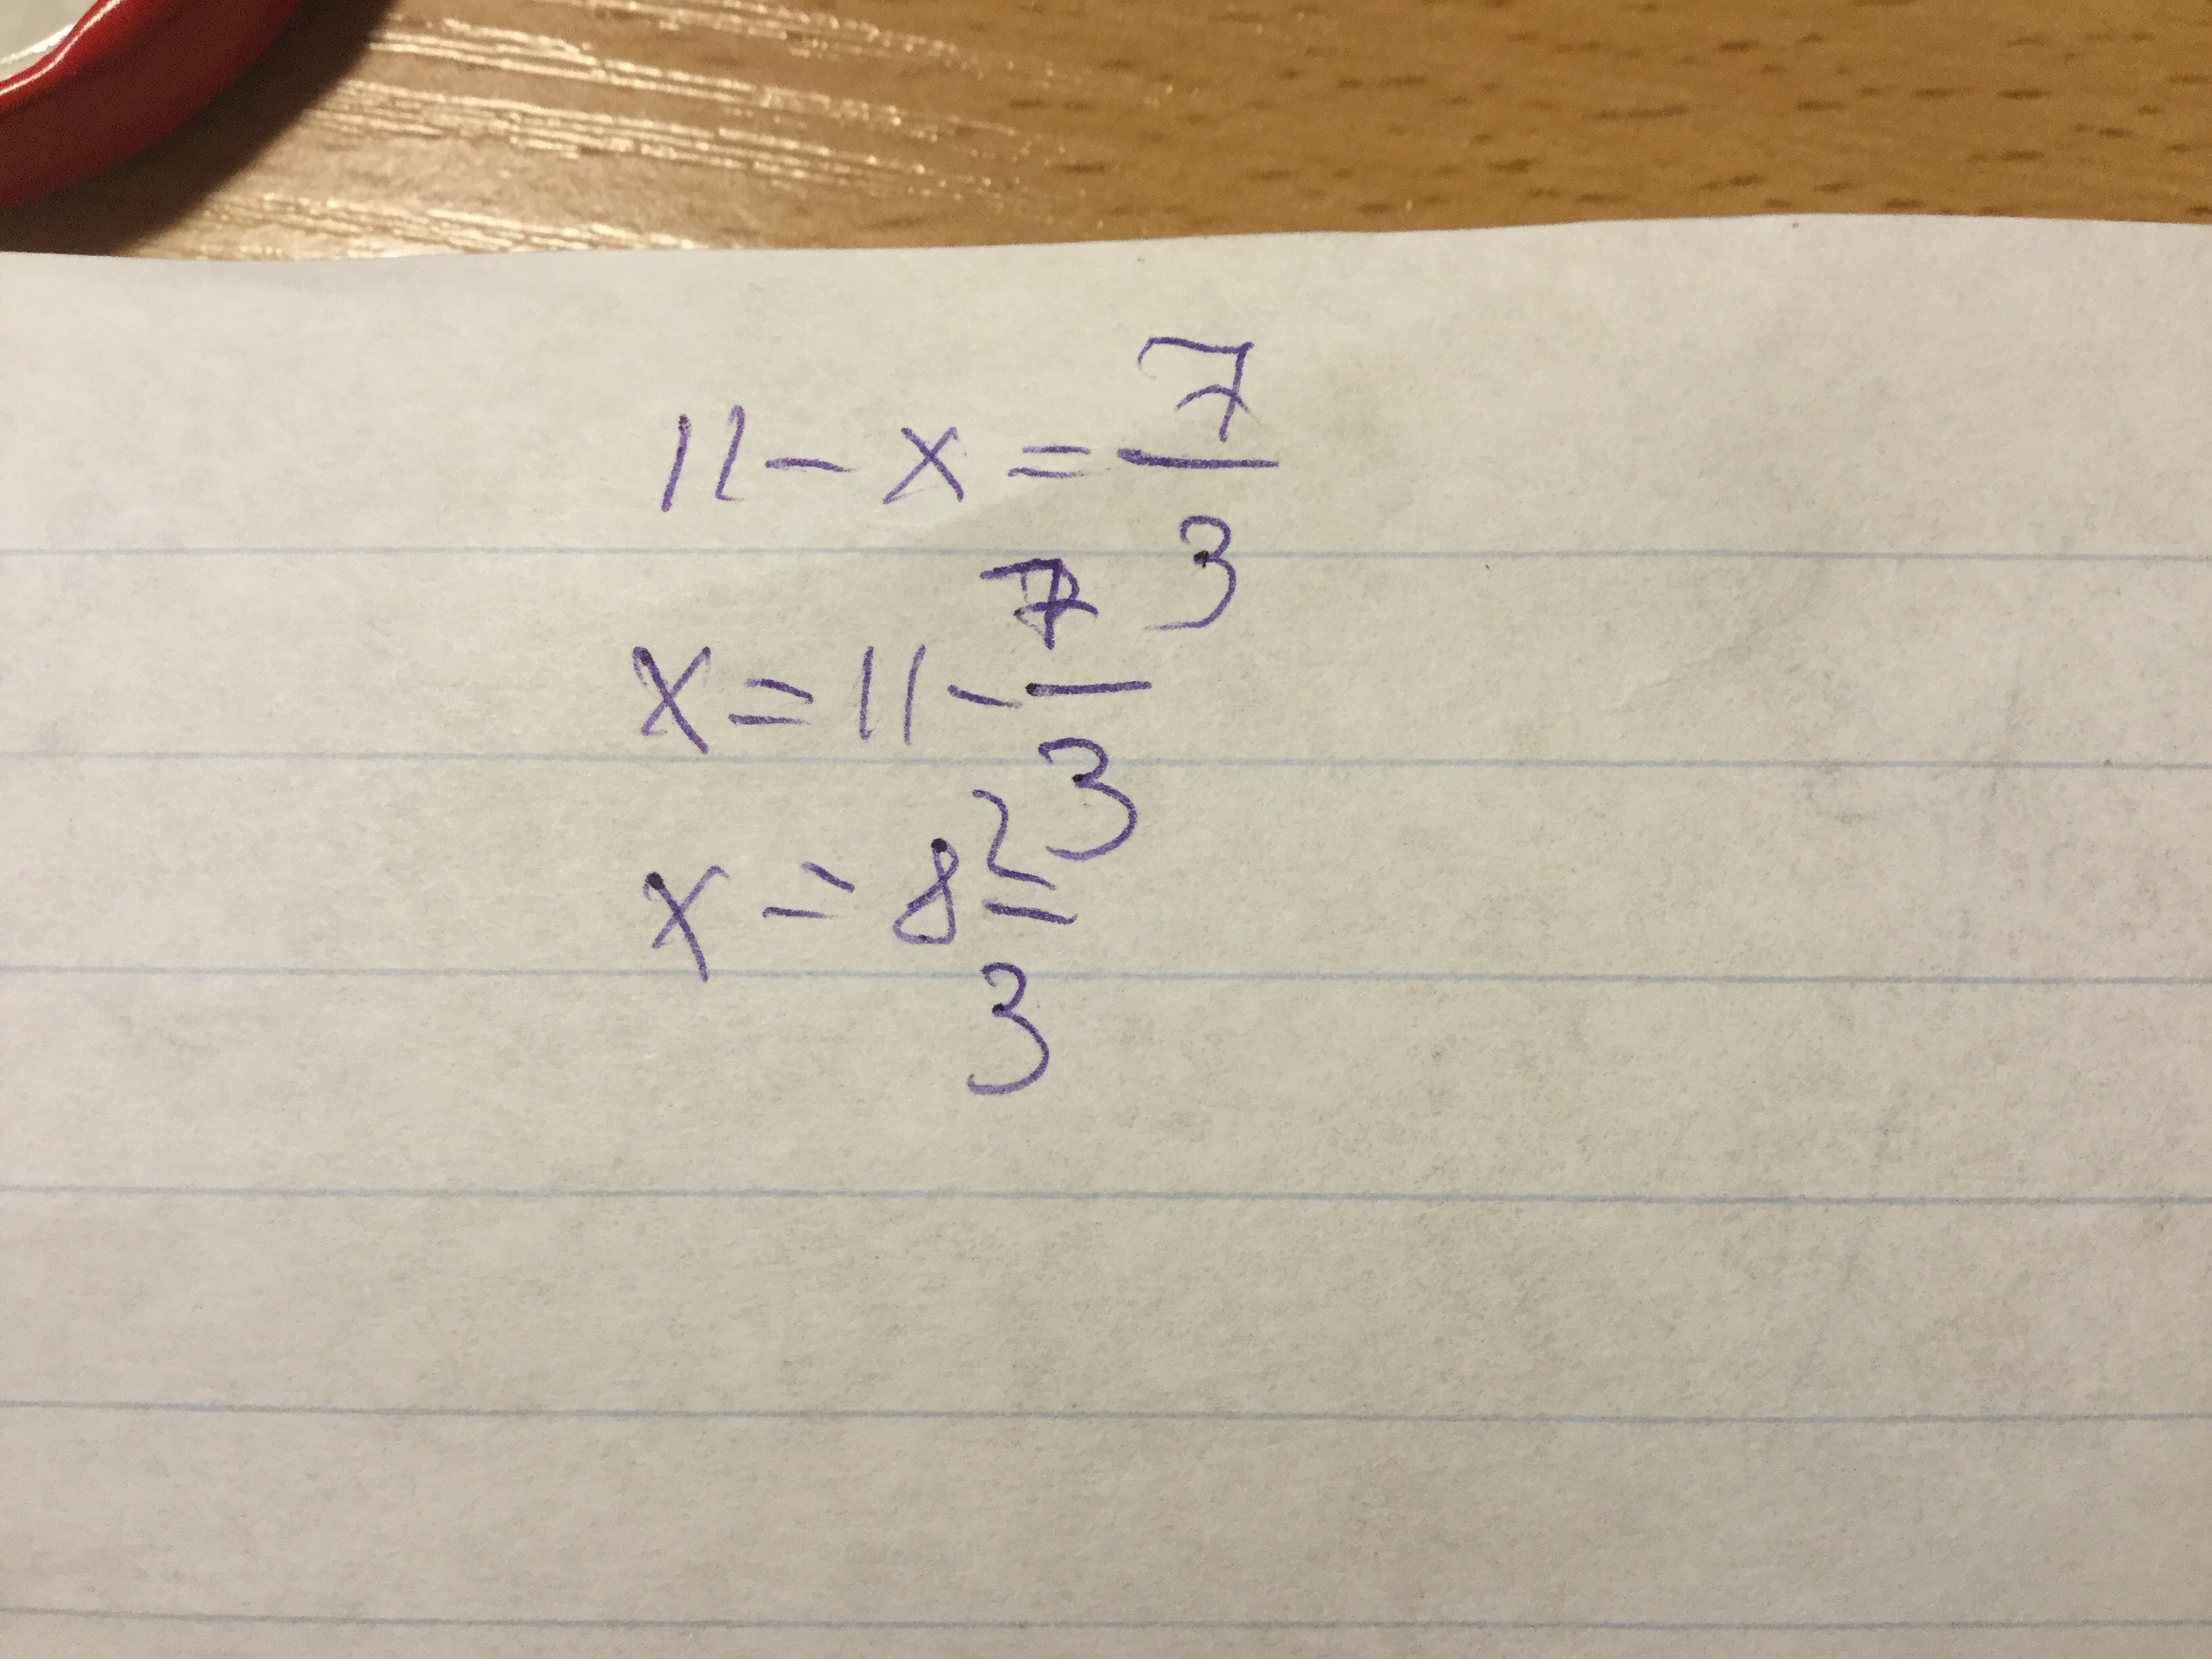 11 - x = 7/3
x = 11 - 7/3
x = 8 2/3